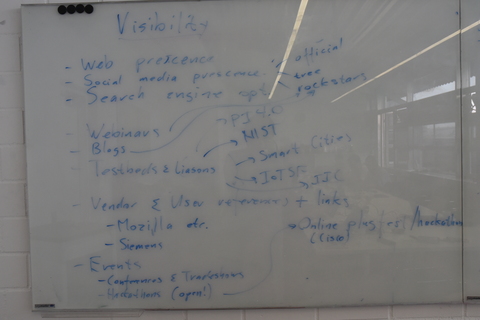 Visibility
- Web presence
- Social media presence
- Search engine opt.
official
tree
rockstars
- Webinars
- Blogs
- Testbeds & Liasons
PI 4.0
NIST
Smart Cities
IoTSF
IIC
- Vendor & User references + links
- Mozilla etc.
- Siemens
Online plugfest/hackathon
(Cisco)
- Events
- Conferences & Tradeshows
- Hackathons (open!)